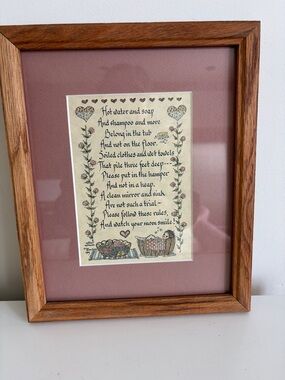 Hot water and soap
And shampoo and more
Belong in the tub
And not on the floor.
Soiled clothes and wet towels
That pile three feet deep---
Please put in the hamper
And not in a heap.
A clean mirror and sink
Are not such a trial~
Please follow these rules,
And watch your mom smile!